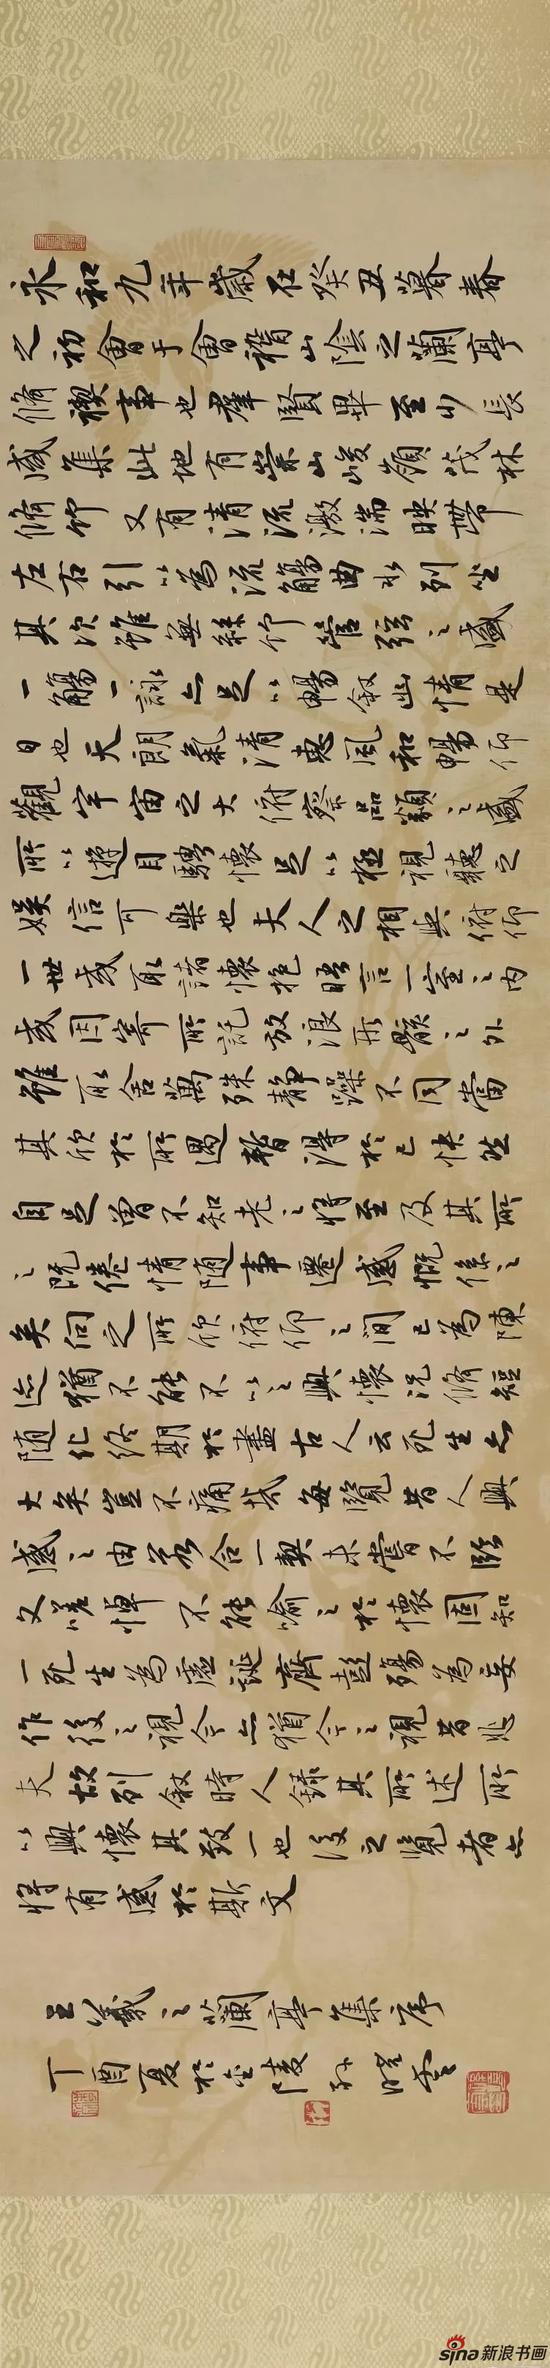 永和九年歲在癸丑暮春
之初會于會稽山陰之蘭亭
脩禊事也羣賢畢至少長
咸集此地有崇山峻嶺茂林
脩竹又有清流激湍映帶
左右引以為流觴曲水列坐
其次雖無絲竹管弦之盛
一觴一詠亦足以暢敘幽情是
日也天朗氣清惠風和暢仰
觀宇宙之大俯察品類之盛
所以遊目騁懷足以極視聽之
娛信可樂也夫人之相與俯仰
一世或取諸懷抱晤言一室之內
或因寄所託放浪形骸之外
雖取舍萬殊靜躁不同當
其欣於所遇暫得於己快然
自足曾不知老之將至及其所
之既倦情随事遷感慨係之
矣向之所欣俯仰之間已為陳
迹猶不能不以之興懷況脩短
随化終期於盡古人云死生亦
大矣豈不痛哉每覽昔人興
感之由若合一契未嘗不臨
文嗟悼不能喻之於懷固知
一死生為虛誕齊彭殤為妄
作後之視今亦猶今之視昔悲
夫故列敘時人錄其所述所
以興懷其致一也後之覽者亦
將有感於斯文
王羲之蘭亭集序
丁酉夏於金陵孫曉雲
sina新浪书画